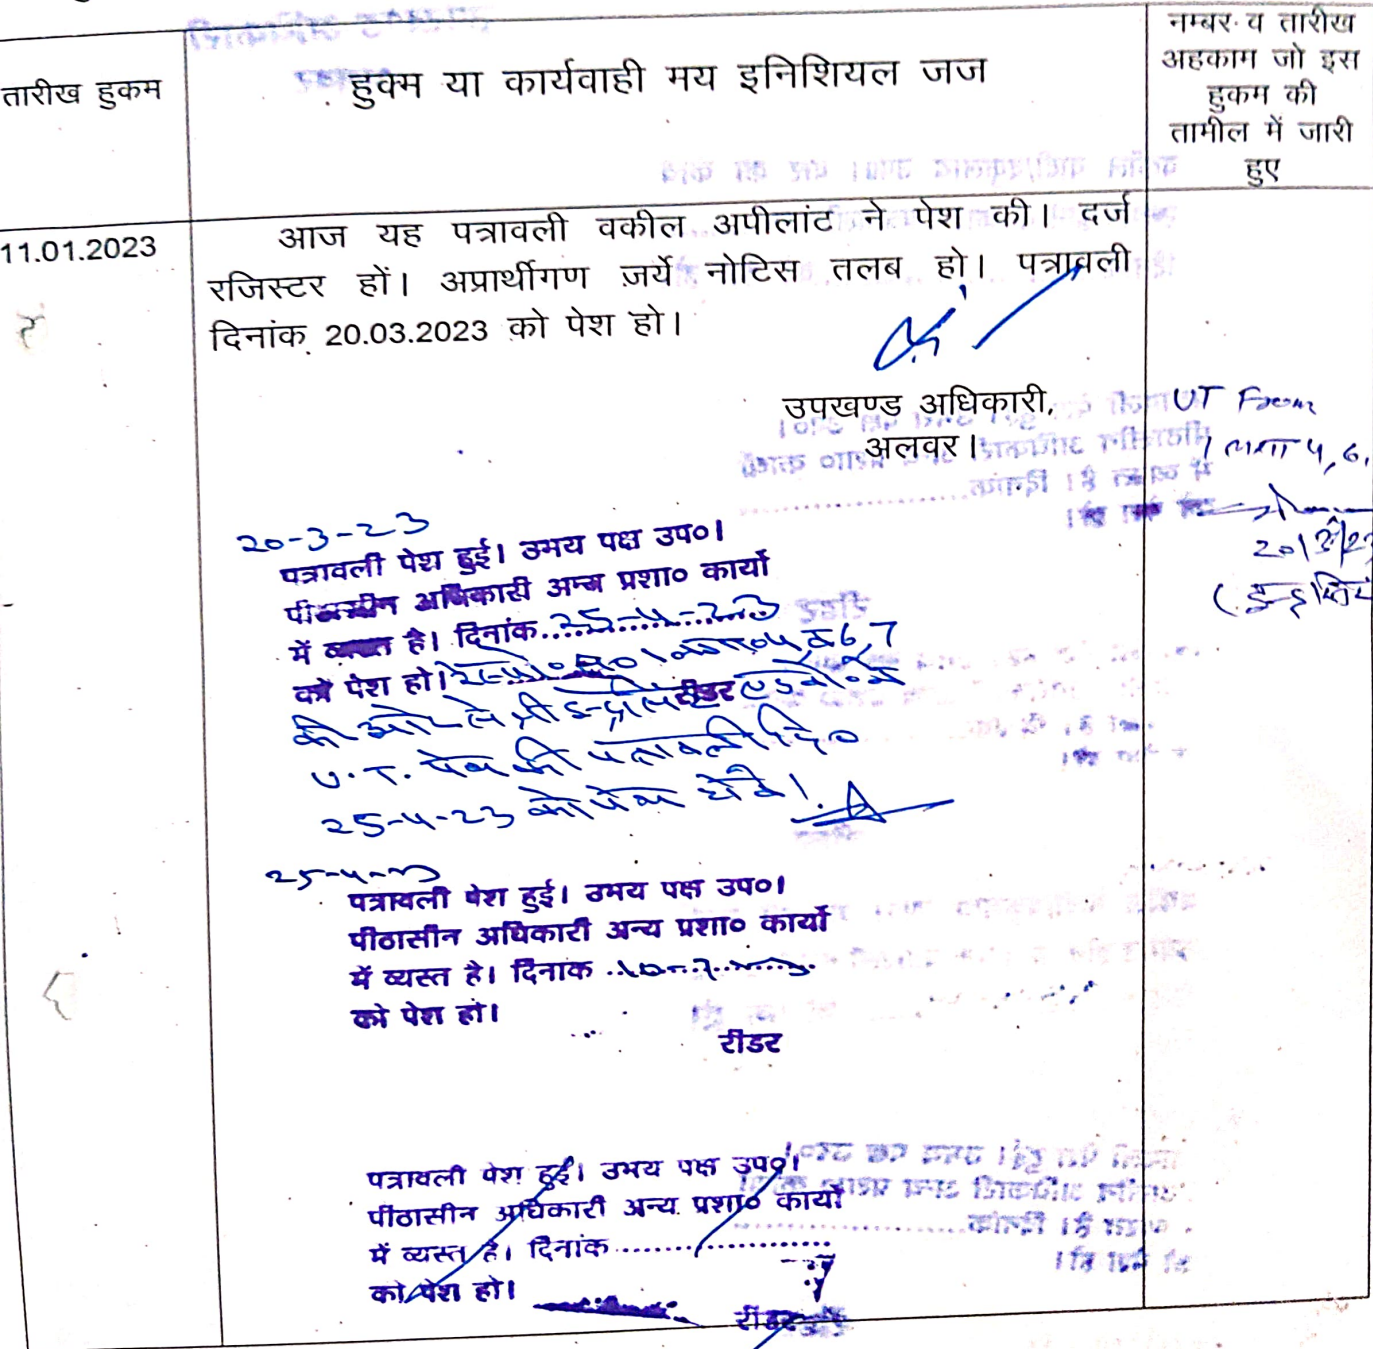 नम्बर व तारीख
अहकाम जो इस
हुकम की
तामील में जारी
हुए
तारीख हुकम
हुक्म या कार्यवाही मय इनिशियल जज
11.01.2023
आज यह पत्रावली वकील अपीलांट ने पेश की। दर्ज
रजिस्टर हों। अप्रार्थीगण ज़र्ये नोटिस तलब हो। पत्रावली
दिनांक 20.03.2023 को पेश हो।
उपखण्ड अधिकारी,
अलवर।
UT From
4, 6,
20-3-23
पत्रावली पेश हुई। उभय पक्ष उप०।
पीठासीन अधिकारी अन्य प्रशा० कार्यो
में व्यस्त है। दिनांक 25-4-23
को पेश हो।
6, 7
रीडर
की ओर से श्री
U.T. पेश की पत्रावली दि०
25-4-23 को पेश होवे।
25-4-23
पत्रावली पेश हुई। उभय पक्ष उप०।
पीठासीन अधिकारी अन्य प्रशा० कार्यो
में व्यस्त है। दिनांक
को पेश हो।
रीडर
पत्रावली पेश हुई। उभय पक्ष उप०।
पीठासीन अधिकारी अन्य प्रशा० कार्यो
में व्यस्त है। दिनांक
को पेश हो।
रीडर